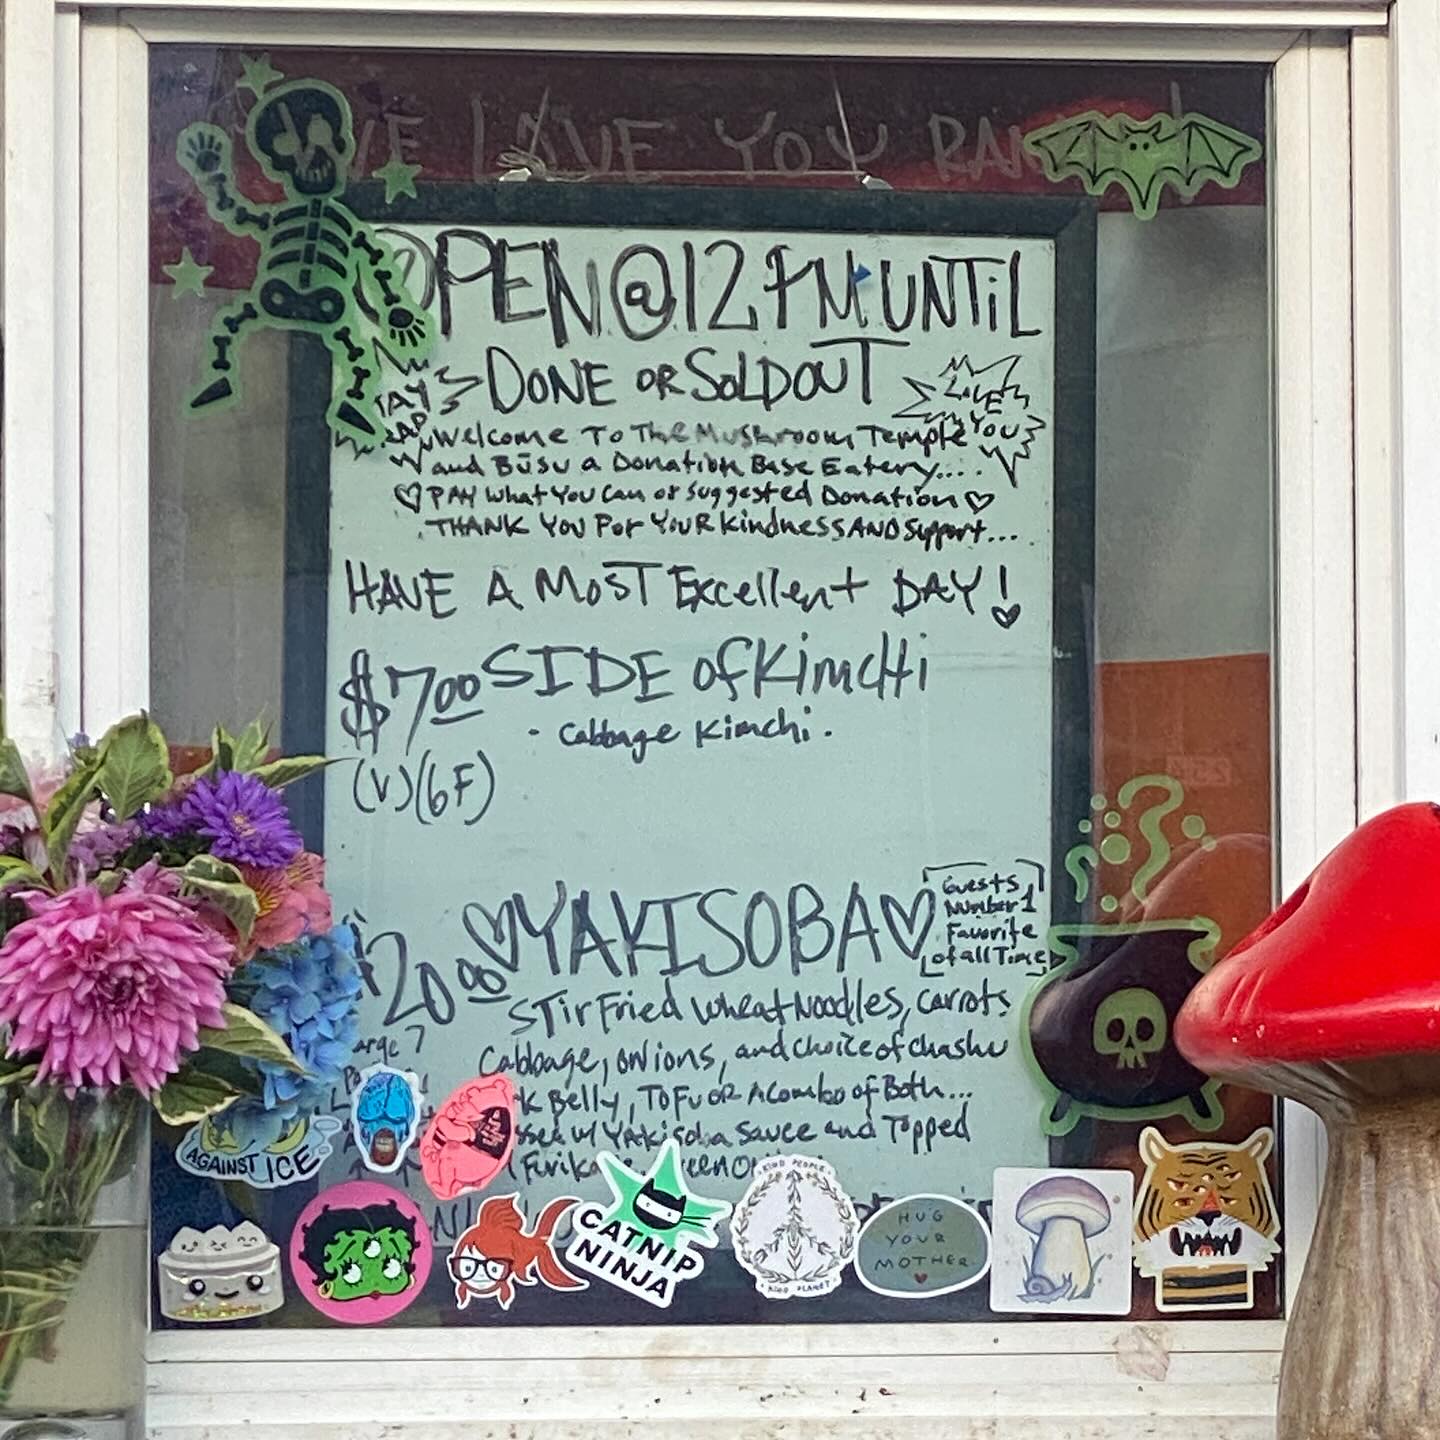 WE LOVE YOU
OPEN @ 12 PM UNTIL
DONE OR SOLD OUT
LOVE
YOU
Welcome To The Mushroom Temple
and Būsu a Donation Base Eatery....
♡ PAY What You Can or Suggested Donation ♡
THANK YOU For YOUR kindness AND Support...
HAVE A MOST Excellent DAY!
$7.00 SIDE of KimcHi
- Cabbage Kimchi.
(V)(GF)
Guests
Number 1
Favorite
of all Time
$20.00 ♡YAKISOBA♡
STir Fried Wheat Noodles, Carrots
Cabbage, onions, and choice of chashu
Belly, ToFu OR A Combo of Both...
w/ YAKisoba Sauce and Topped
AGAINST ICE
CATNIP
NINJA
KIND PEOPLE
KIND PLANET
HUG
YOUR
MOTHER